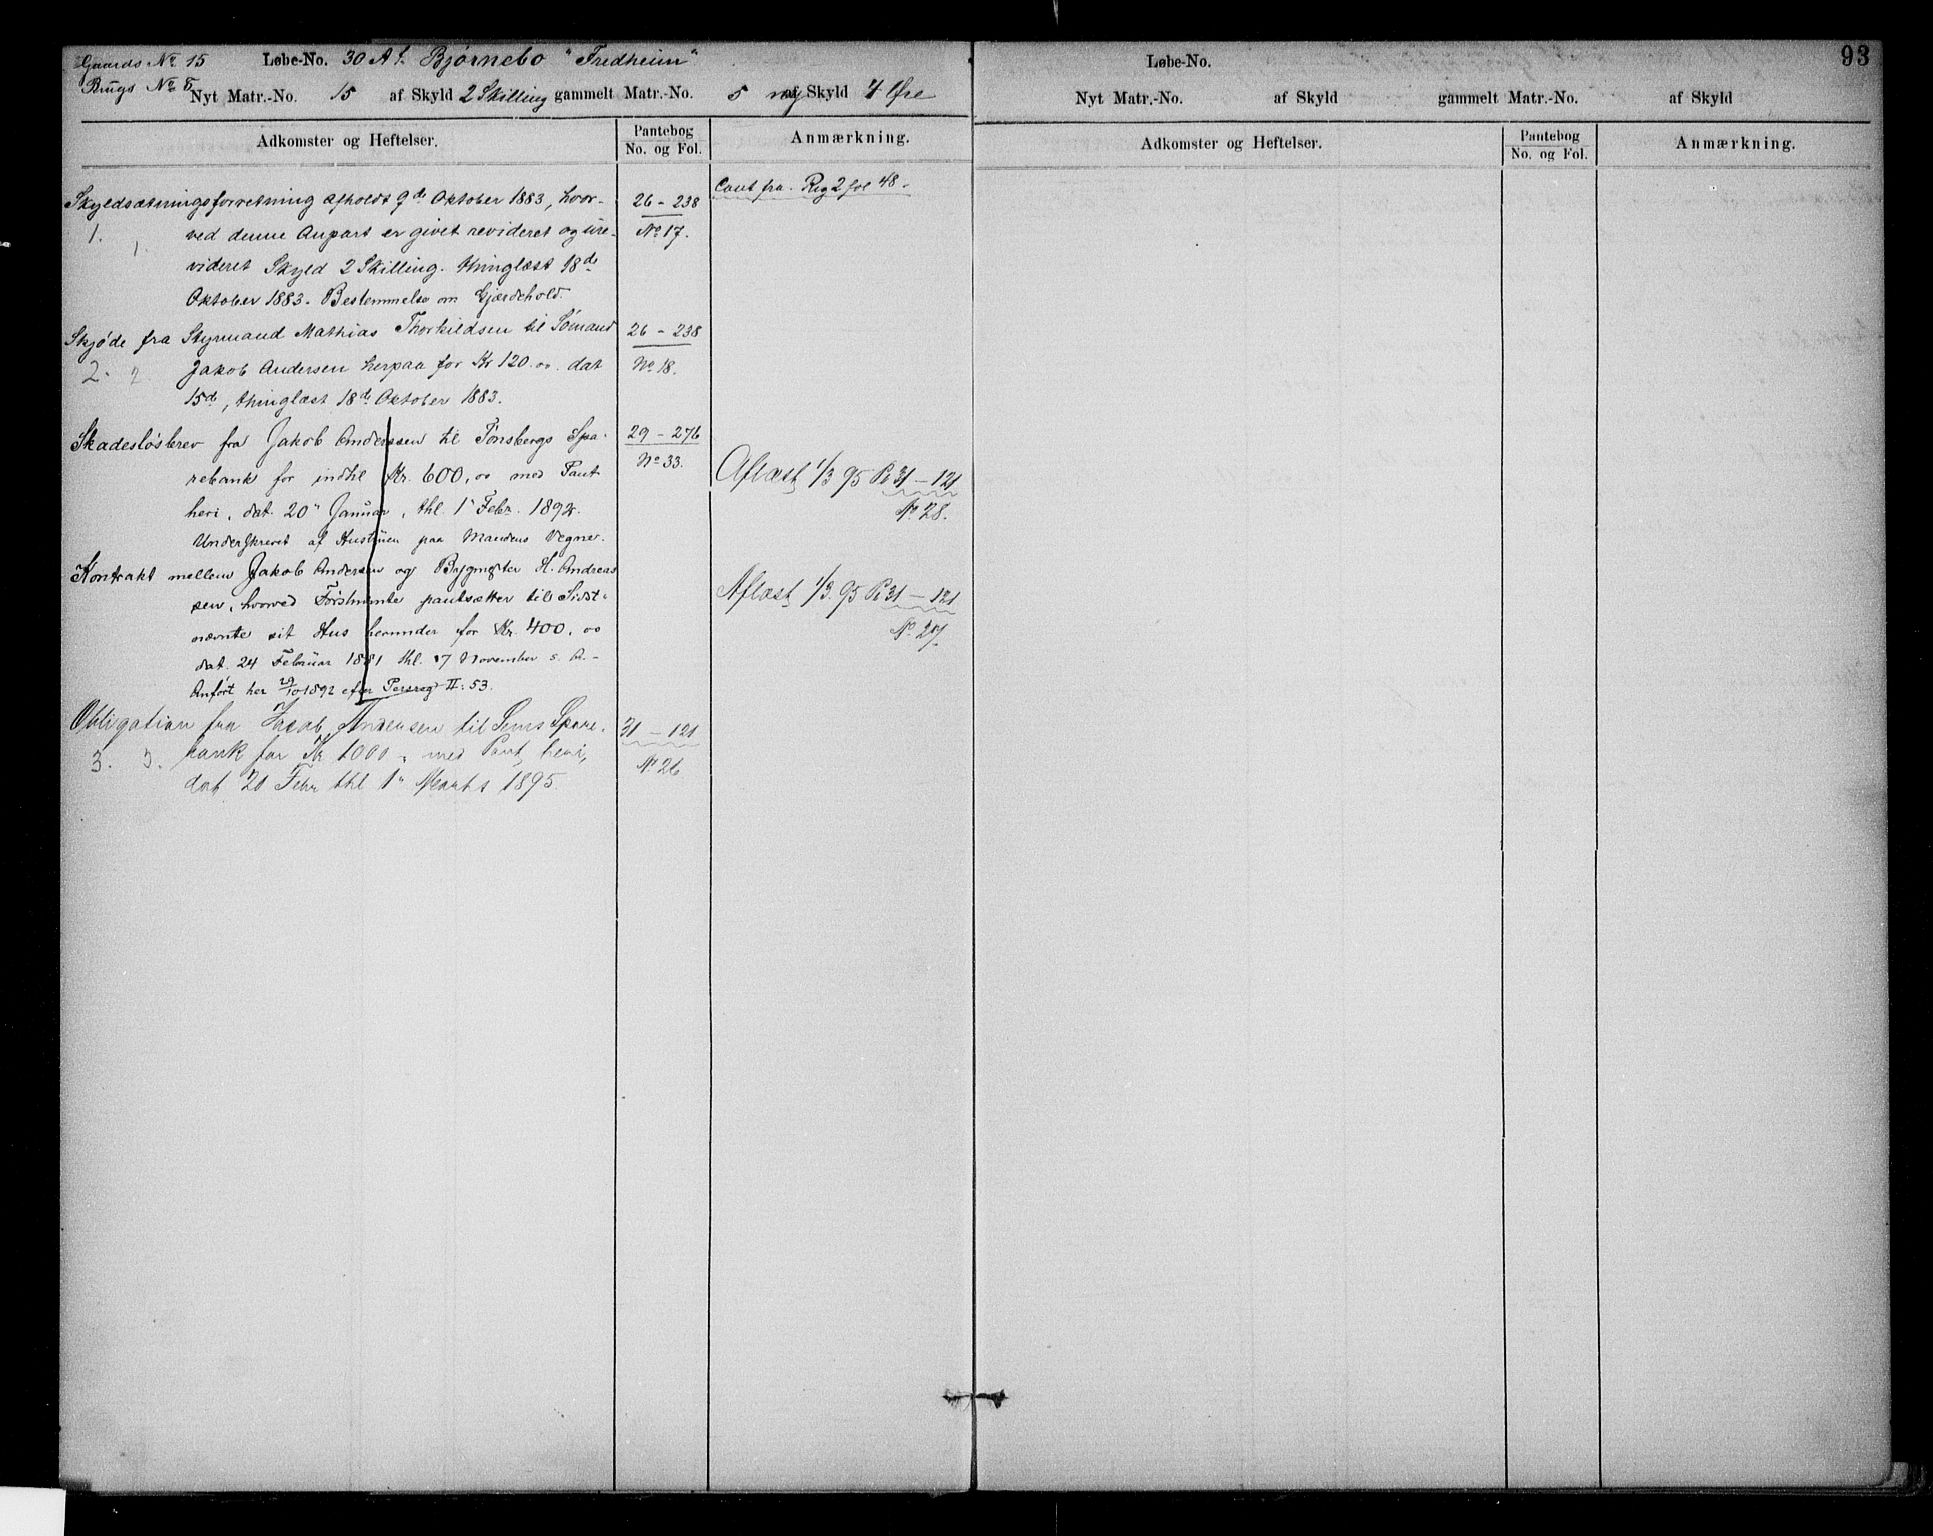 Gaards No 15 Løbe-No. 30 A f. Bjørnebo "Fredheim"
Brugs No 5 Nyt Matr.-No. 15 af Skyld 2 Skilling gammelt Matr.-No. 5 af Skyld 4 Øre
Adkomster og Heftelser. Pantebog No. og Fol. Anmærkning.
Skyldsætningsforretning afholdt 9de Oktober 1883, hvor- 26 - 238 Cont fra. Reg 2 fol 48.
1. 1. ved denne Anpart er givet revideret og ure- No 17.
videret Skyld 2 Skilling. thinglæst 18de
Oktober 1883. Bestemmelse om Gjærdehold.
Skjøde fra Styrmand Mathias Thorkildsen til Sømand 26 - 238
2. 2. Jakob Andersen herpaa for Kr 120.oo. dat No 18.
15de, thinglæst 18de Oktober 1883.
Skadesløsbrev fra Jakob Anderssen til Tønsbergs Spa- 29 - 276
rebank for indtil Kr. 600,oo med Pant No 33. Aflæst 1/3 95 P. 31 - 121
heri, dat. 20" Januar, thl. 1" Febr. 1892. No 28.
Underskrevet af Hustruen paa Mandens Vegne.
Kontrakt mellem Jakob Andersen og Bygmester H. Andreas
sen, hvorved Førstnævnte pantsætter til Sidst- Aflæst 1/3. 95 P. 31 - 121
nævnte sit Hus herunder for Kr. 400,oo No 27.
dat. 24 Februar 1881 thl. 17 November s. A.
Anført her 29/10 1892 efter Persreg II: 53.
Obligation fra Jacob Andersen til Sems Spare- 31 - 121
3. 3. bank for Kr 1000 " med Pant heri, No 26
dat. 20 Febr thl 1" Marts 1895.
93
Løbe-No.
Nyt Matr.-No. af Skyld gammelt Matr.-No. af Skyld
Adkomster og Heftelser. Pantebog No. og Fol. Anmærkning.